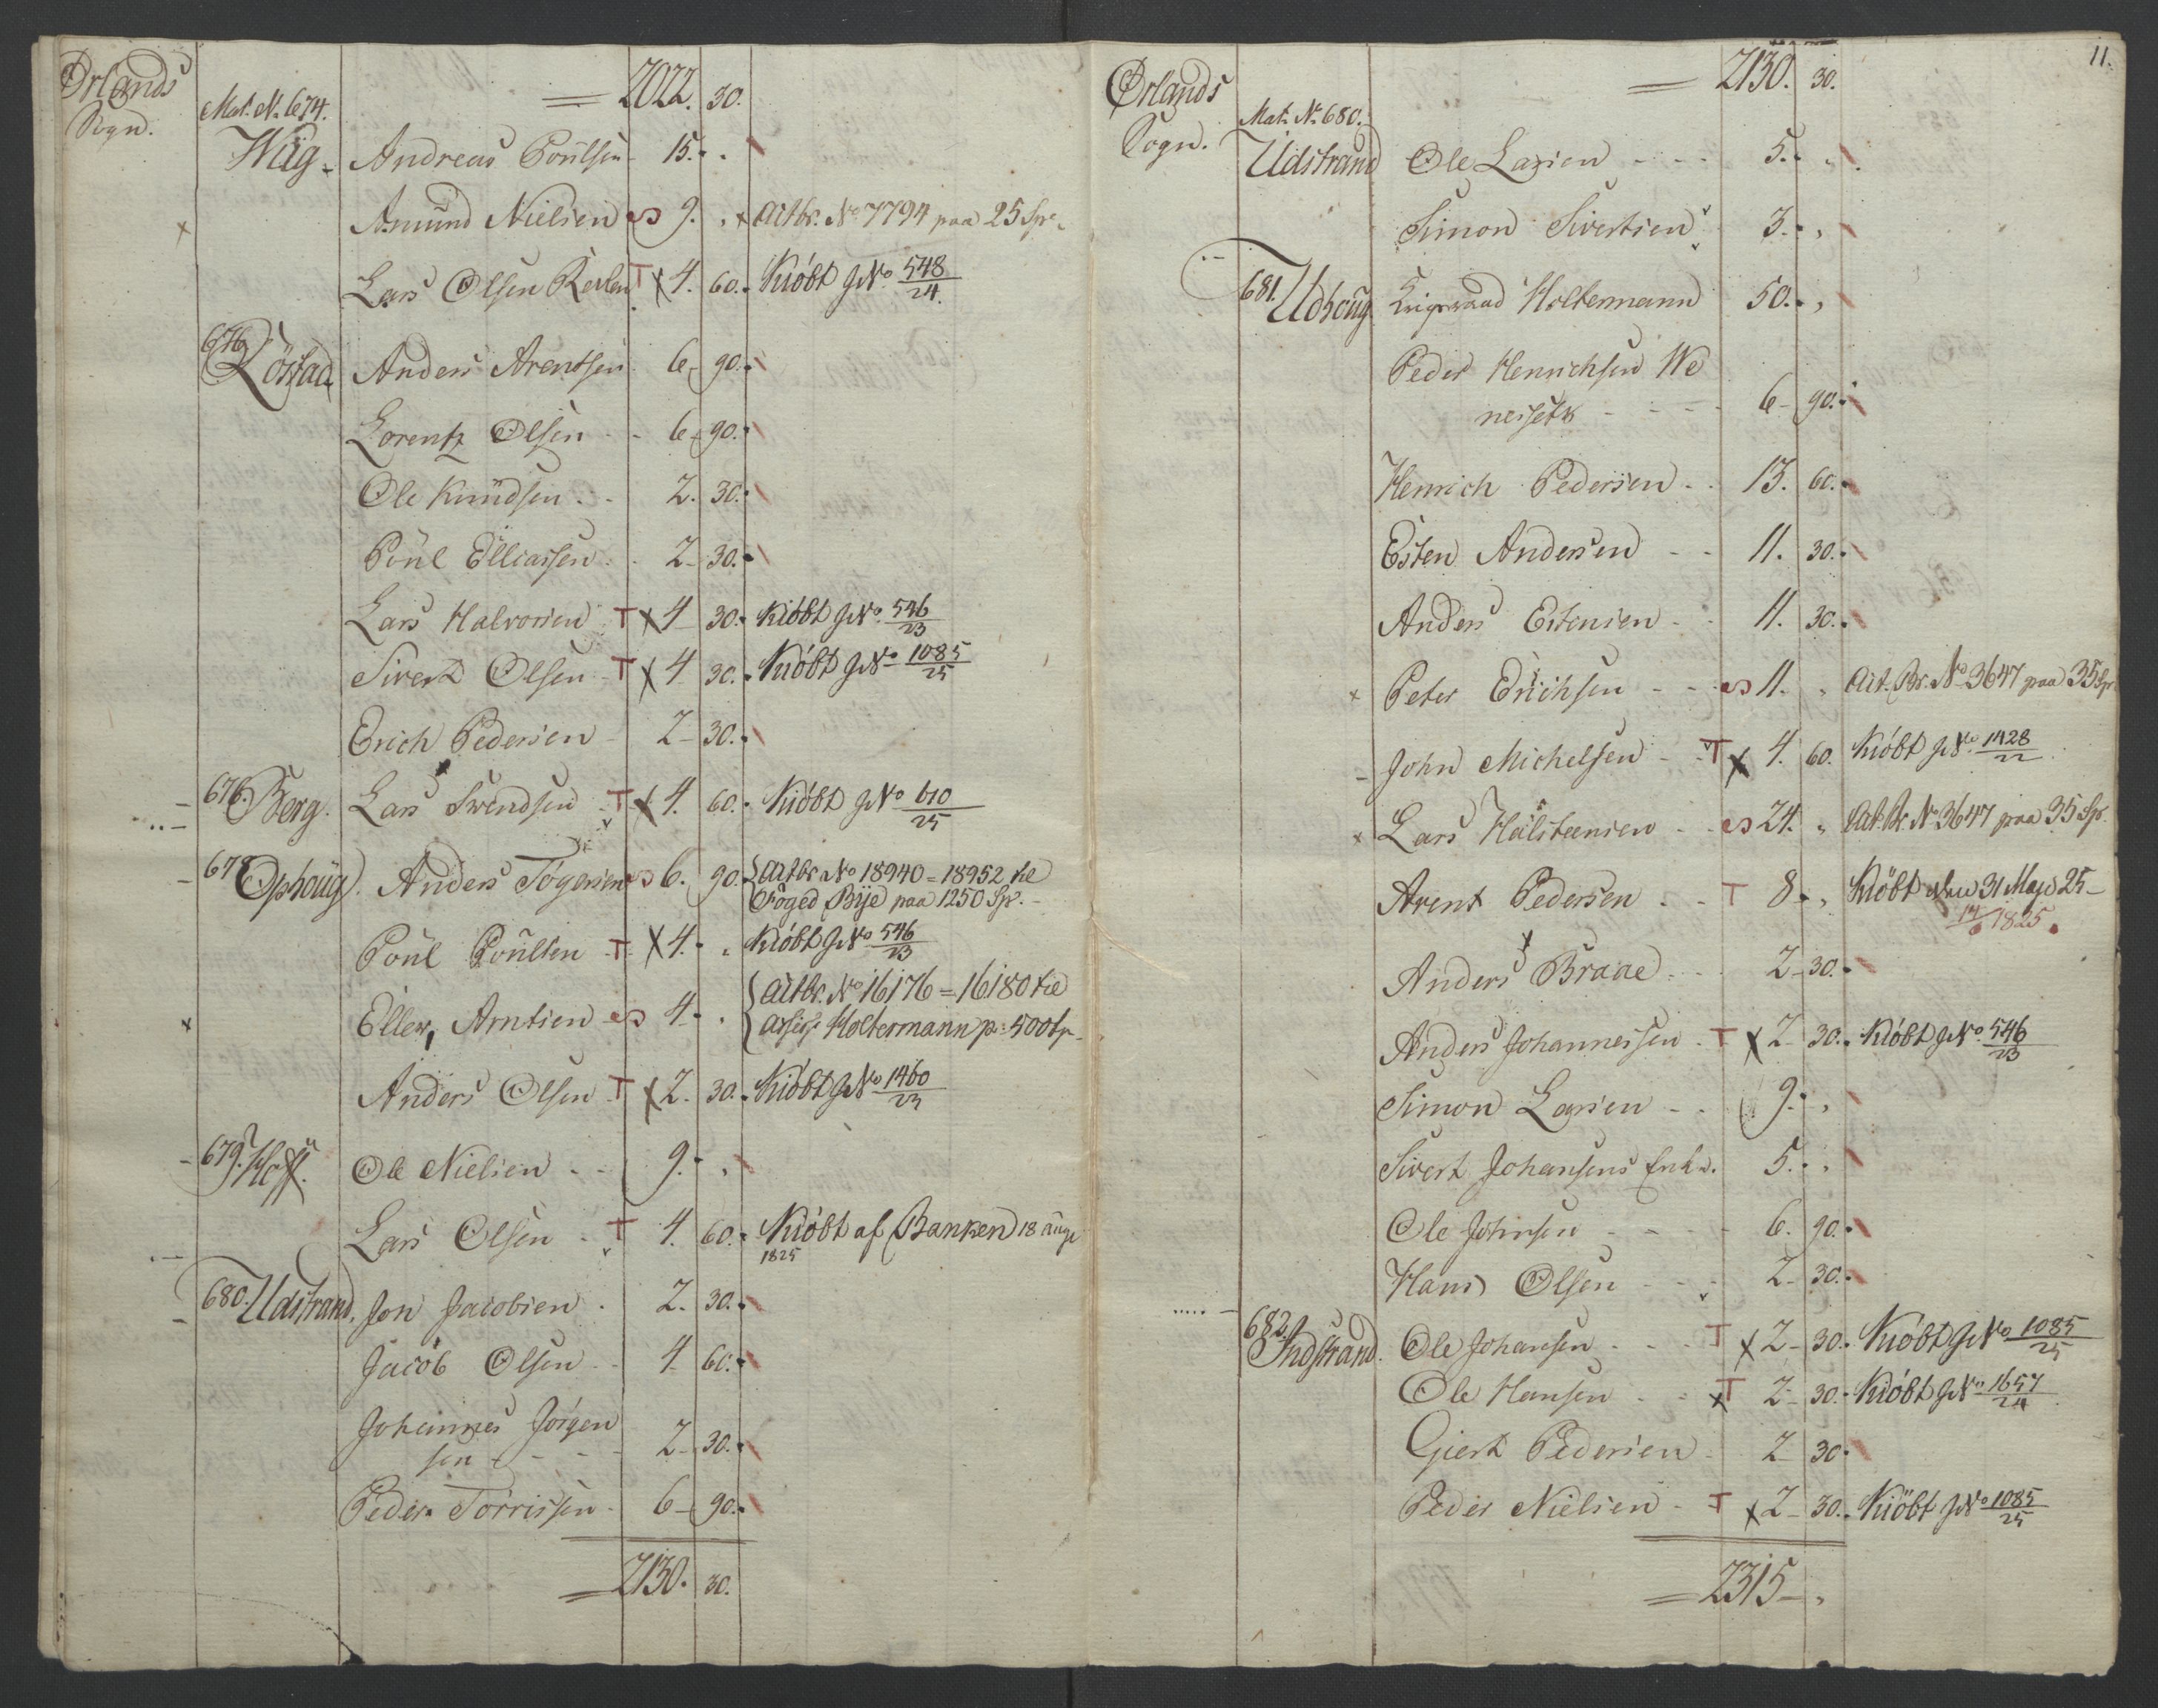 Ørlands
Sogn.
= 2022. 30.
Mat. N. 674.
Wüg. Andreas Poülsen 15. "
Amund Nielsen 9. " x Actbr. No 7794 paa 25 Spr.
Lars Olsen T x 4. 60. Kiöbt J No 548/24.
Röstad Anders Arentsen 6 90.
Lorentz Olsen - 6 90.
Ole Knüdsen - 2. 30.
Poül Elliassen - 2 30.
Lars Halvorsen T x 4 30. Kiöbt J No. 546/23
Sivert Olsen T x 4 30. Kiöbt J No 1085/25
Erich Pedersen - 2 30.
676. Berg. Lars Svendsen T x 4. 60. Kiöbt J No 610/25
678 Ophoüg. Anders Tögersen 6. 90. { Actbr No 18940 = 18952 til
Foged Bije paa 1250 Sp. -
Poül Poülsen T x 4. " Kiöbt J No 546/23
Eller Arntsen 4. " { Actbr. No 16176 = 16180 til
Holtermann p: 500 Sp.
Anders Olsen T x 2. 30. Kiöbt J No 1460/23
679. Hoff. Ole Nielsen - - 9. "
Lars Olsen - T 4. 60. Kiöbt af Banken 18 aug
1825
680. Udstrand. Jon Jacobsen - 2. 30.
Jacob Olsen - 4 60.
Johannes Jörgen
sen - - - 2 30.
Peder Törrissen - 6 90.
= 2130. 30.
11.
Ørlands
Sogn.
= 2130. 30.
Mat. N. 680.
Udstrand Ole Larsen - - - 5. "
Simon Sivertsen 3. "
681. Udhoug Holtermann 50. "
Peder Henrichsen We
nessetk - - - - 6 90.
Henrich Pedersen - - 13. 60.
Esten Andersen - - 11. 30.
Anders Estensen - - 11. 30.
Peter Erichsen - - 11. " Act. Br. No 3647 paa 35 Spr
John Michelsen - - T x 4. 60. Kiöbt J No. 1428/22
Lars Halsteensen - 24. " Act. Br. No 3647 paa 35 Sp.
Arent Pedersen - - T 8. " Kiöbt den 31 Maji 25 -
14/6 1825.
Anders Braae - - - 2 30.
Anders Johannessen - T x 2 30. Kiöbt J No. 546/23
Simon Larsen - - 9. "
Sivert Johansens Enke. 5. "
Ole Johnsen - - - 6. 90.
Hans Olsen - - - 2 30.
682. Indstrand. Ole Johansen - - - T x 2 30. Kiöbt J No 1085/25
Ole Hansen - - x T 2 30. Kiöbt J No 1657/24
Giert Pedersen - 2 30.
Peder Nielsen - T x 2 30. Kiöbt J No 1085/25
= 2315 "